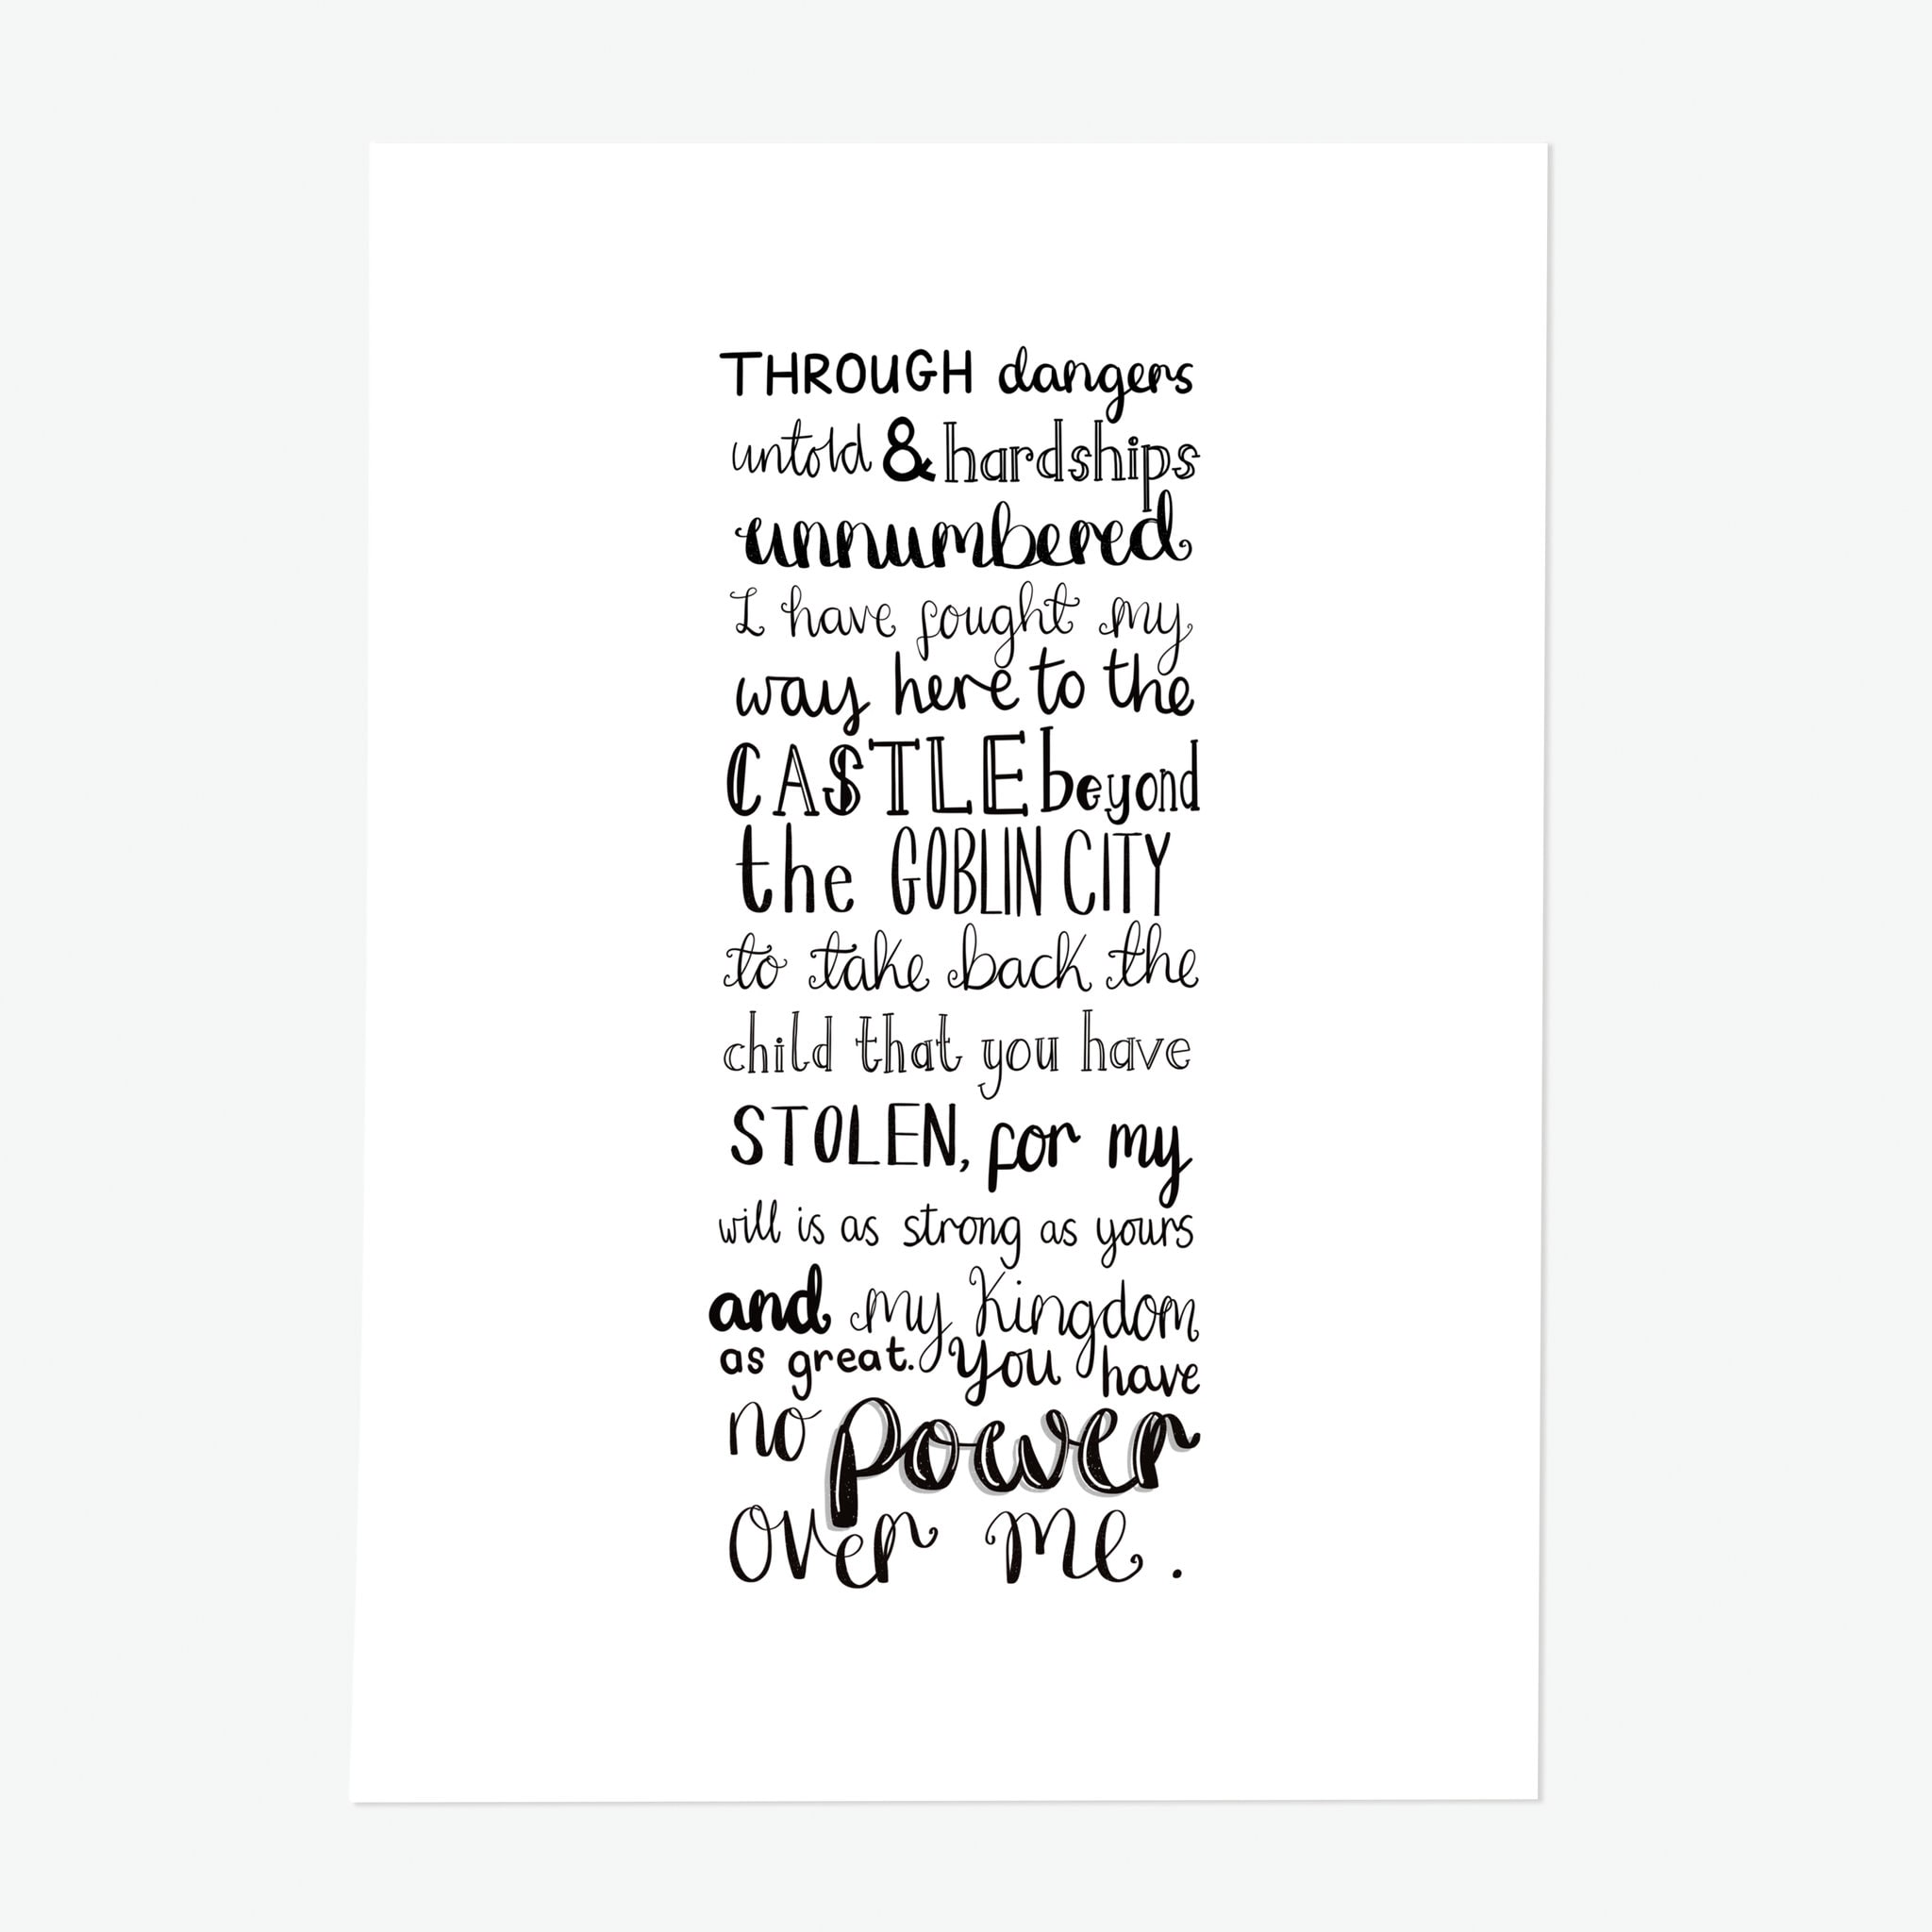 THROUGH dangers
untold & hardships
unnumbered
I have fought my
way here to the
CASTLE beyond
the GOBLIN CITY
to take back the
child that you have
STOLEN, for my
will is as strong as yours
and my kingdom
as great. You have
no power
over me.